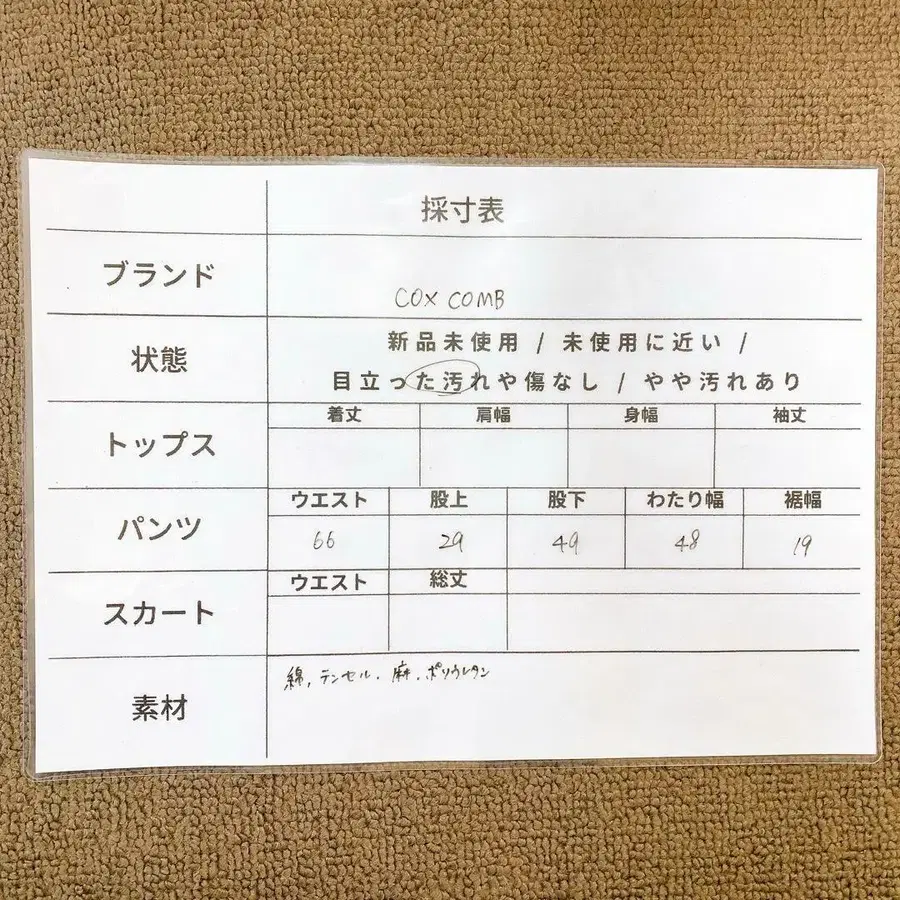 採寸表
ブランド
COX COMB
状態
新品未使用 / 未使用に近い /
目立った汚れや傷なし / やや汚れあり
トップス
着丈 肩幅 身幅 袖丈
パンツ
ウエスト 股上 股下 わたり幅 裾幅
66 29 49 48 19
スカート
ウエスト 総丈
素材
綿, テンセル. 麻. ポリウレタン